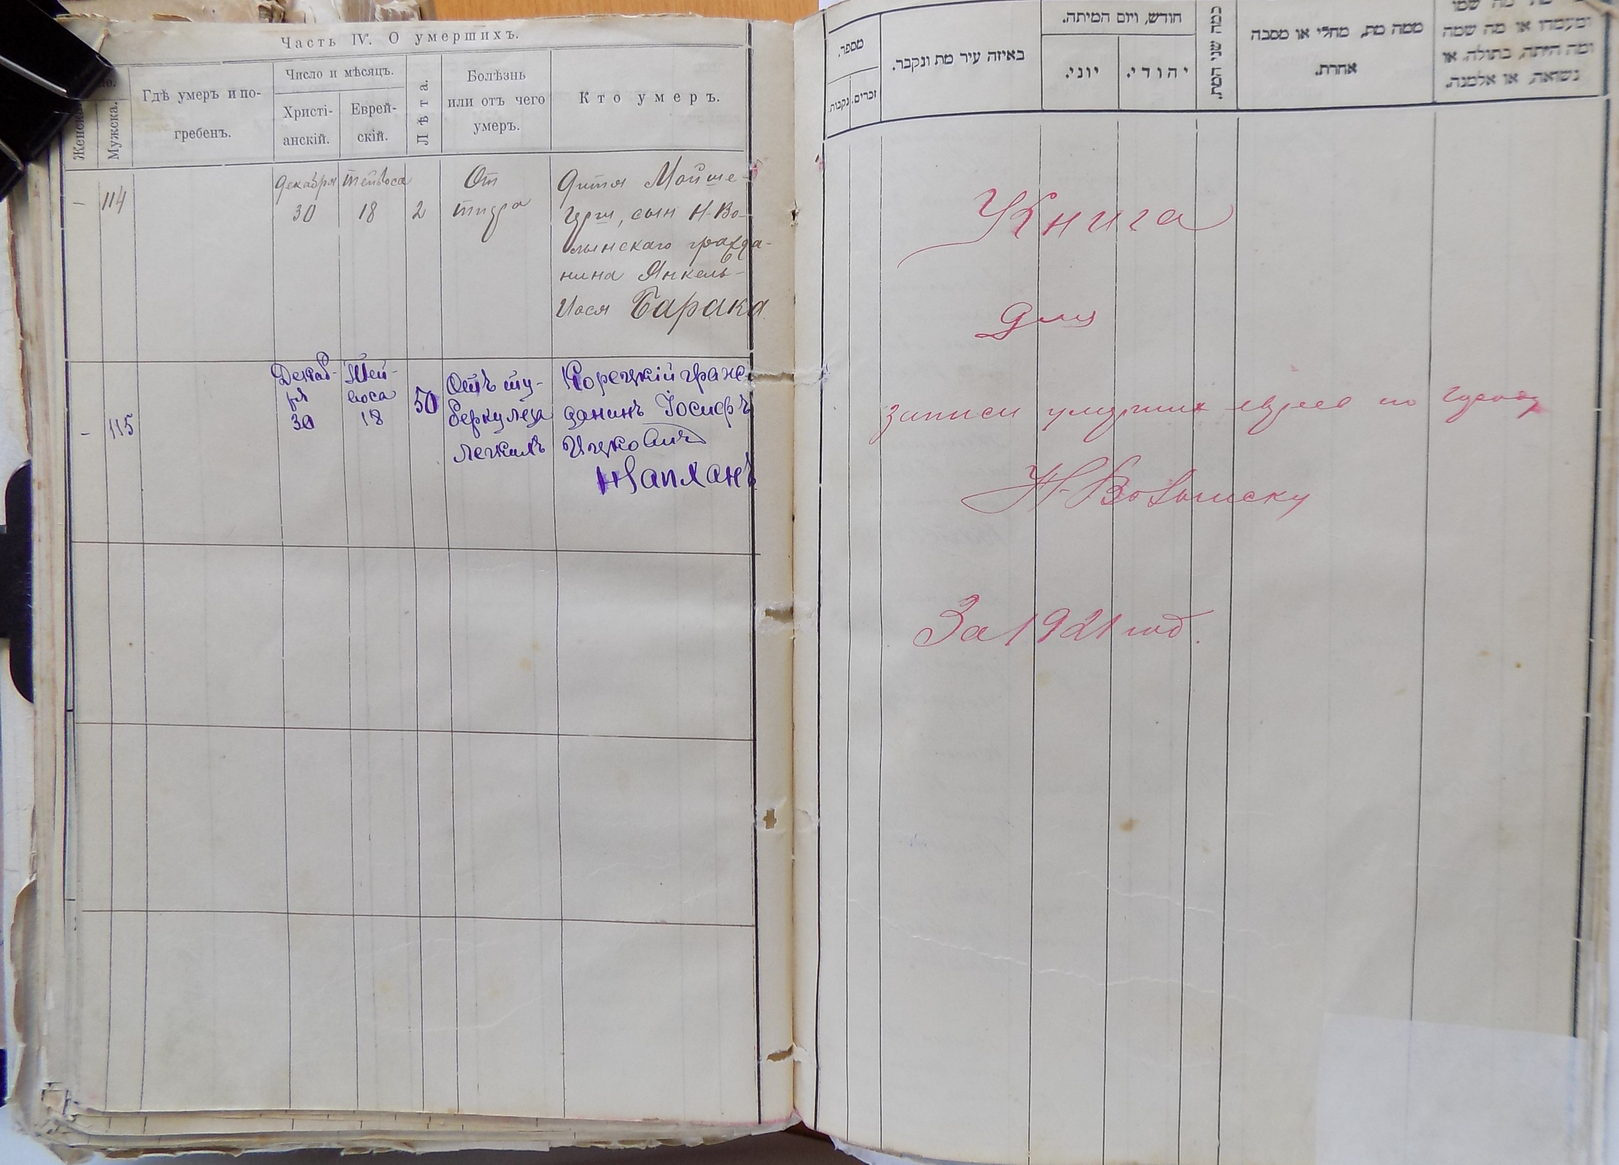 Часть IV. О умершихъ.
Женска
Мужска.
Гдѣ умеръ и по-
гребенъ.
Число и мѣсяцъ.
Христі-
анскій.
Еврей-
скій.
Лѣта.
Болѣзнь
или отъ чего
умеръ.
Кто умеръ.
– 114
Декабря
30
Тейвоса
18
2
От
тифа
Дитя Мойше-
Герш, сын Н-Во-
лынскаго гражда-
нина Янкель-
Иося Барака
– 115
Декаб-
ря
30
Тей-
воса
18
50
Отъ ту-
беркулеза
легкихъ
Корецкій граж-
данинъ Іосифъ
Ицковичъ
Каплан
מספר.
זכרים.
נקבות.
באיזה עיר מת ונקבר.
חודש, ויום המיתה.
יוני.
יהודי.
כמה שני המת.
ממה מת, מחלי או מסבה
אחרת.
ומעמדו או מה שמה
ומה היתה, בתולה, או
נשואה, או אלמנה.
Книга
для
записи умерших евреев по городу
Н-Волынску
За 1921 год.